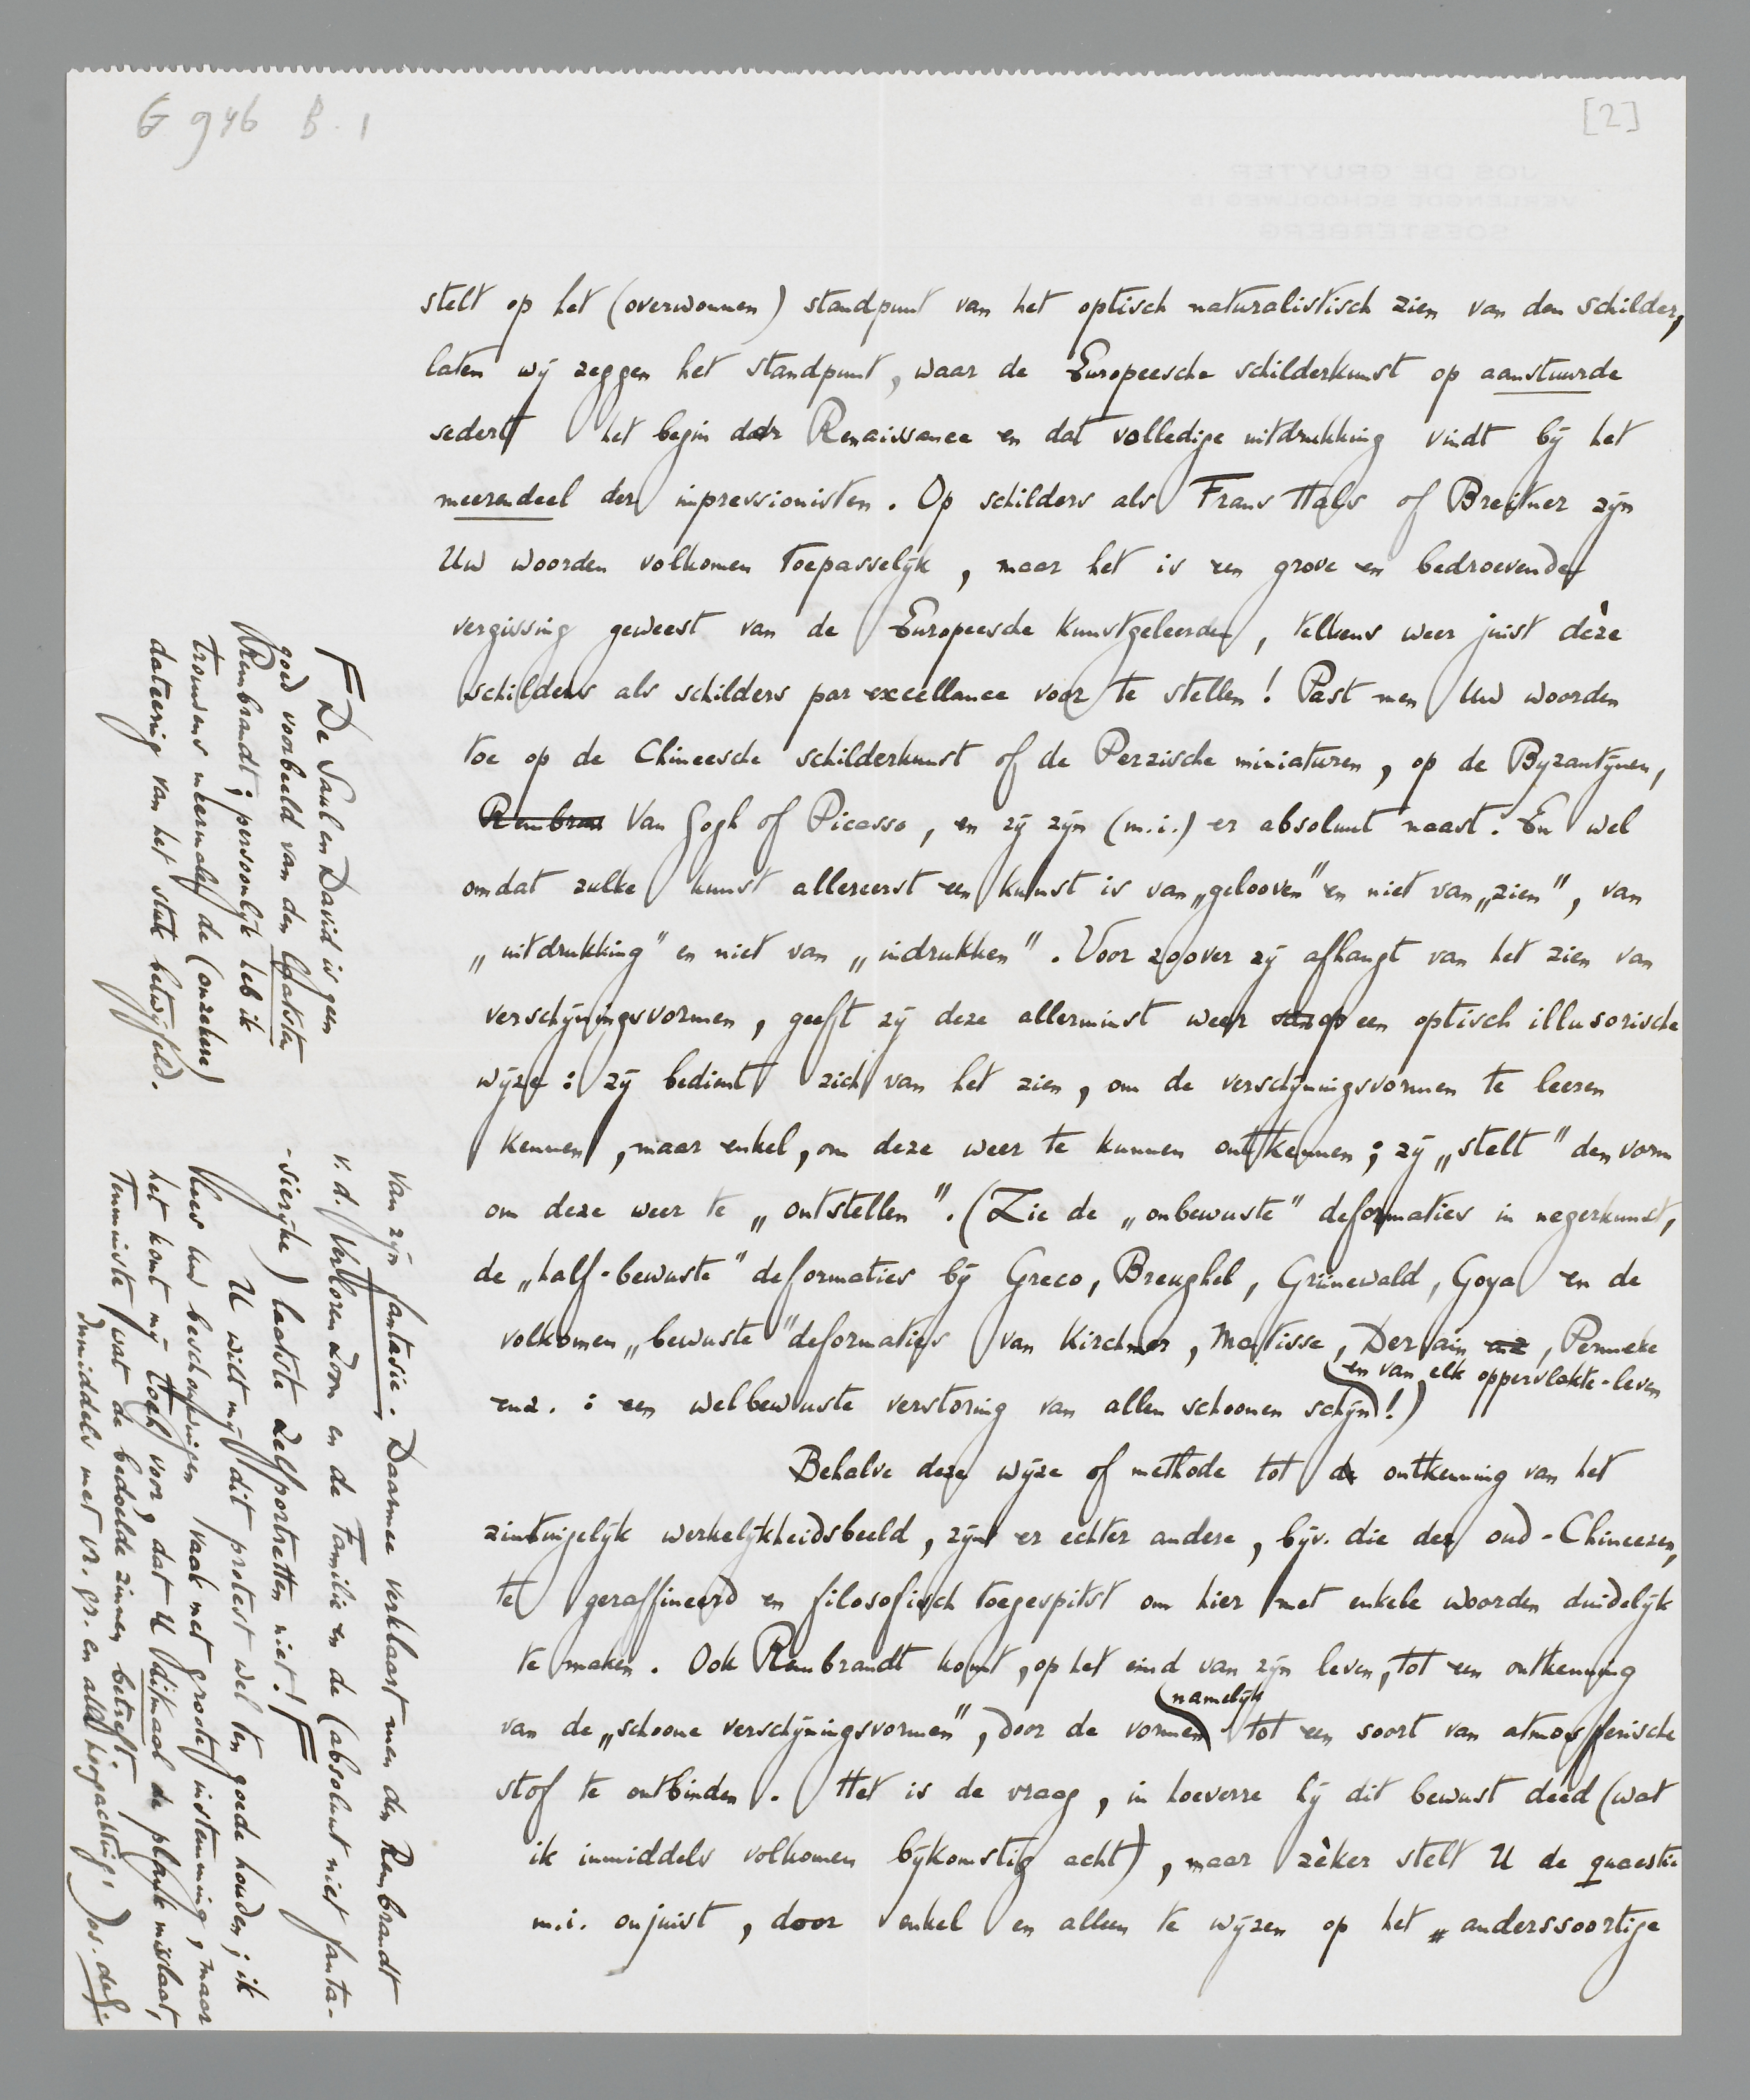 G 946 B. 1
[2]
JOS DE GRUYTER
VERLENGDE SCHOOLWEG 15
SOESTERBERG
stelt op het (overwonnen) standpunt van het optisch naturalistisch zien van den schilder,
laten wij zeggen het standpunt, waar de Europeesche schilderkunst op aanstuurde
sedert het begin der Renaissance en dat volledige uitdrukking vindt bij het
meerendeel der impressionisten. Op schilders als Frans Hals of Breitner zijn
Uw woorden volkomen toepasselijk, maar het is een grove en bedroevende
vergissing geweest van de Europeesche kunstgeleerden, telkens weer juist dèze
schilders als schilders par excellance voor te stellen! Past men Uw woorden
toe op de Chineesche schilderkunst of de Perzische miniaturen, op de Byzantijnen,
Rembran Van Gogh of Picasso, en zij zijn (m.i.) er absoluut naast. En wel
omdat zulke kunst allereerst een kunst is van „gelooven” en niet van „zien”, van
„uitdrukking” en niet van „indrukken”. Voor zoover zij afhangt van het zien van
verschijningsvormen, geeft zij deze allerminst weer op een optisch illusorische
wijze: zij bedient zich van het zien, om de verschijningsvormen te leeren
kennen, maar enkel, om deze weer te kunnen ontkennen; zij „stelt” den vorm
om deze weer te „ontstellen”. (Zie de „onbewuste” deformaties in negerkunst,
de „half-bewuste” deformaties bij Greco, Breughel, Grünewald, Goya en de
volkomen „bewuste” deformaties van Kirchner, Matisse, Derain, Permeke
en van elk oppervlakte-leven
enz.: een welbewuste verstoring van allen schoonen schijn!)
Behalve deze wijze of methode tot de ontkenning van het
zintuigelijk werkelijkheidsbeeld, zijn er echter andere, bijv. die der oud-Chineezen,
te geraffineerd en filosofisch toegespitst om hier met enkele woorden duidelijk
te maken. Ook Rembrandt komt, op het eind van zijn leven, tot een ontkenning
namelijk
van de „schoone verschijningsvormen”, door de vormen tot een soort van atmosferische
stof te ontbinden. Het is de vraag, in hoeverre hij dit bewust deed (wat
ik inmiddels volkomen bijkomstig acht), maar zèker stelt U de quaestie
m.i. onjuist, door enkel en alleen te wijzen op het „anderssoortige
van zijn fantasie. Daarmee verklaart men den Rembrandt
v.d. Verloren Zoon en de Familie en de (absoluut niet fanta-
-sierijke) laatste zelfportretten niet! F
U wilt mij dit protest wel ten goede houden; ik
lees Uw beschouwingen vaak met groote instemming, maar
het komt mij toch voor, dat U ditmaal de plank misslaat,
tenminste wat de bedoelde zinnen betreft.
Inmiddels met vr. gr. en alle hoogachting, Jos. de G.
F De Saul en David is geen
goed voorbeeld van den laatsten
Rembrandt; persoonlijk heb ik
trouwens meermalen de (onzekere)
dateering van het stuk betwijfeld.